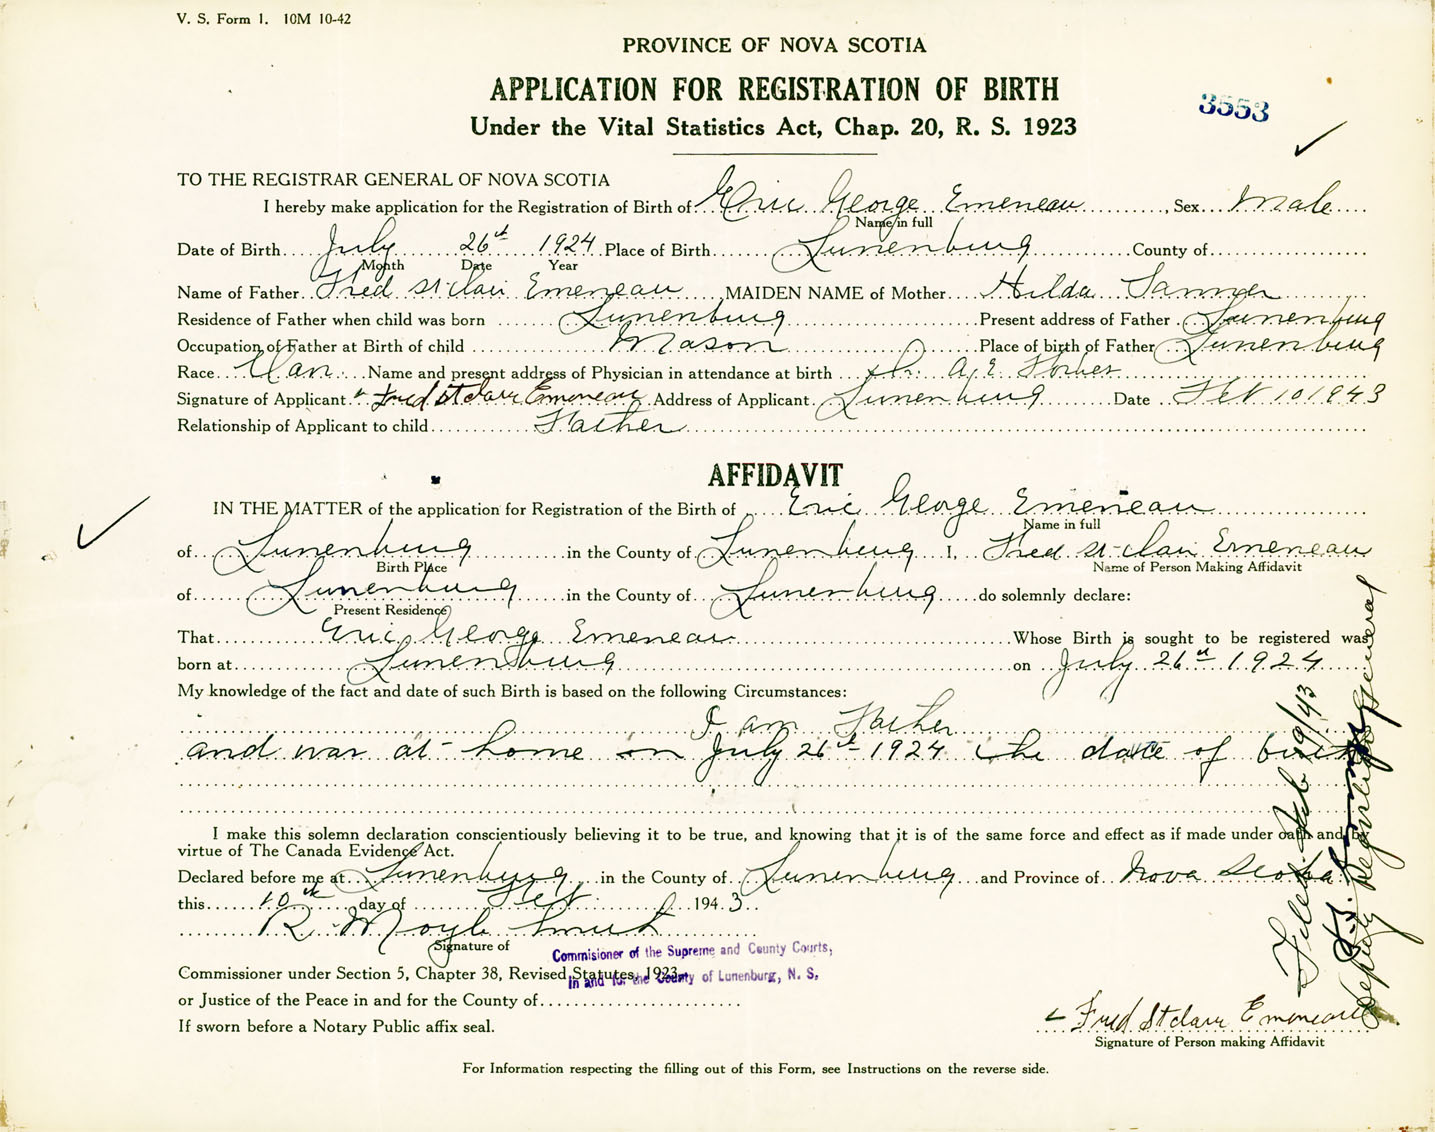 V. S. Form 1. 10M 10-42
PROVINCE OF NOVA SCOTIA
APPLICATION FOR REGISTRATION OF BIRTH
3553
Under the Vital Statistics Act, Chap. 20, R. S. 1923
TO THE REGISTRAR GENERAL OF NOVA SCOTIA
I hereby make application for the Registration of Birth of Eric George Emeneau, Sex Male
Name in full
Date of Birth July 26th 1924 Place of Birth Lunenburg County of
Month Date Year
Name of Father Fred St Clair Emeneau, MAIDEN NAME of Mother Hilda
Residence of Father when child was born Lunenburg Present address of Father Lunenburg
Occupation of Father at Birth of child Mason Place of birth of Father Lunenburg
Race Name and present address of Physician in attendance at birth Dr. A. E. Forbes
Signature of Applicant Fred St clair Emeneau Address of Applicant Lunenburg Date Feb 10 1943
Relationship of Applicant to child Father
AFFIDAVIT
IN THE MATTER of the application for Registration of the Birth of Eric George Emeneau
Name in full
of Lunenburg in the County of Lunenburg I, Fred St-Clair Emeneau
Birth Place Name of Person Making Affidavit
of Lunenburg in the County of Lunenburg do solemnly declare:
Present Residence
That Eric George Emeneau Whose Birth is sought to be registered was
born at Lunenburg on July 26th 1924
My knowledge of the fact and date of such Birth is based on the following Circumstances:
I am Father
and was at home on July 26th 1924 the date of birth
I make this solemn declaration conscientiously believing it to be true, and knowing that it is of the same force and effect as if made under oath and by
virtue of The Canada Evidence Act.
Declared before me at Lunenburg in the County of Lunenburg and Province of Nova Scotia
this 10th day of Feb 1943
R. Moyle Smith
Signature of
Commisioner of the Supreme and County Courts,
In and for the County of Lunenburg, N. S.
Commissioner under Section 5, Chapter 38, Revised Statutes, 1923
or Justice of the Peace in and for the County of
If sworn before a Notary Public affix seal.
Fred St clair Emeneau
Signature of Person making Affidavit
For Information respecting the filling out of this Form, see Instructions on the reverse side.
Filed Feb 19/43
Deputy Registrar General